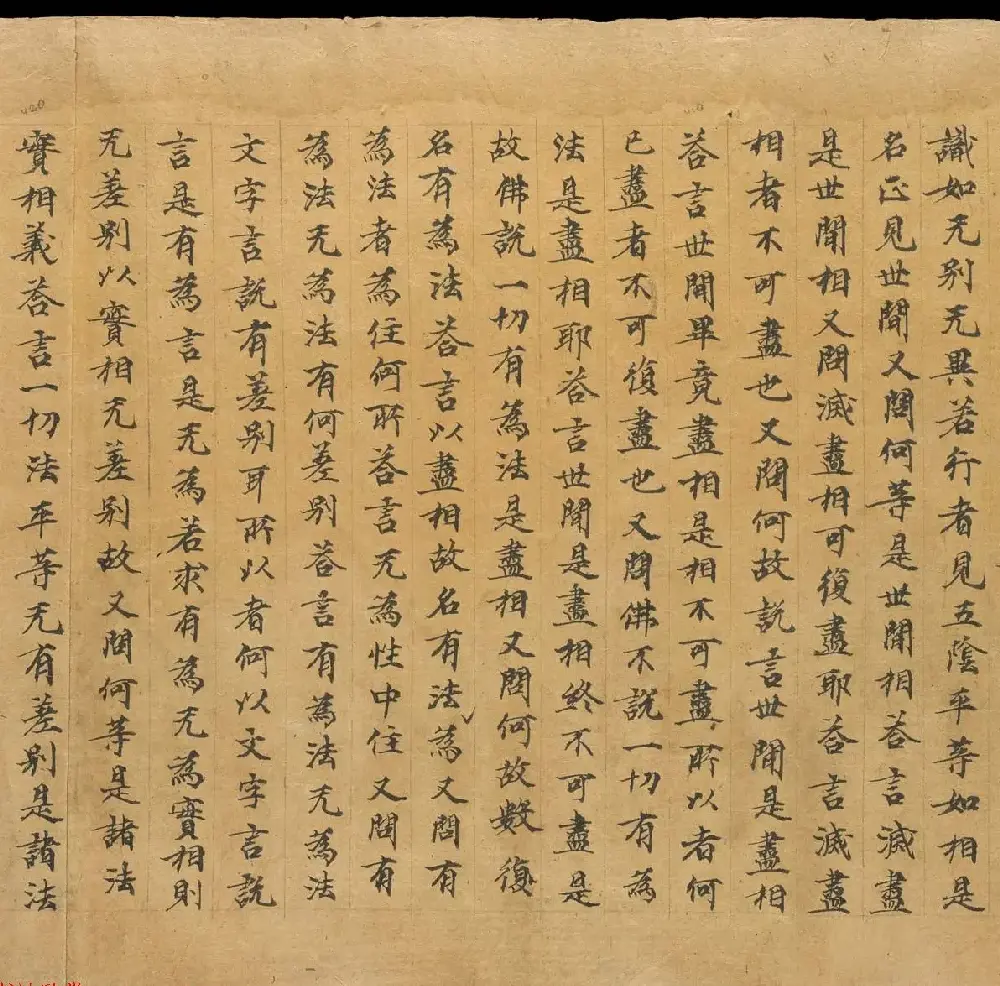 識如无别无異若行者見五陰平等如相是
名正見世間又問何等是世間相荅言滅盡
是世間相又問滅盡相可復盡耶荅言滅盡
相者不可盡也又問何故說言世間是盡相
荅言世間畢竟盡相是相不可盡所以者何
已盡者不可復盡也又問佛不說一切有為
法是盡相耶荅言世間是盡相終不可盡是
故佛說一切有為法是盡相又問何故數復
名有為法荅言以盡相故名有法為又問有
為法者為住何所荅言无為性中住又問有
為法无為法有何差别荅言有為法无為法
文字言說有差别耳所以者何以文字言說
言是有為言是无為若求有為无為實相則
无差别以實相无差别故又問何等是諸法
實相義荅言一切法平等无有差别是諸法